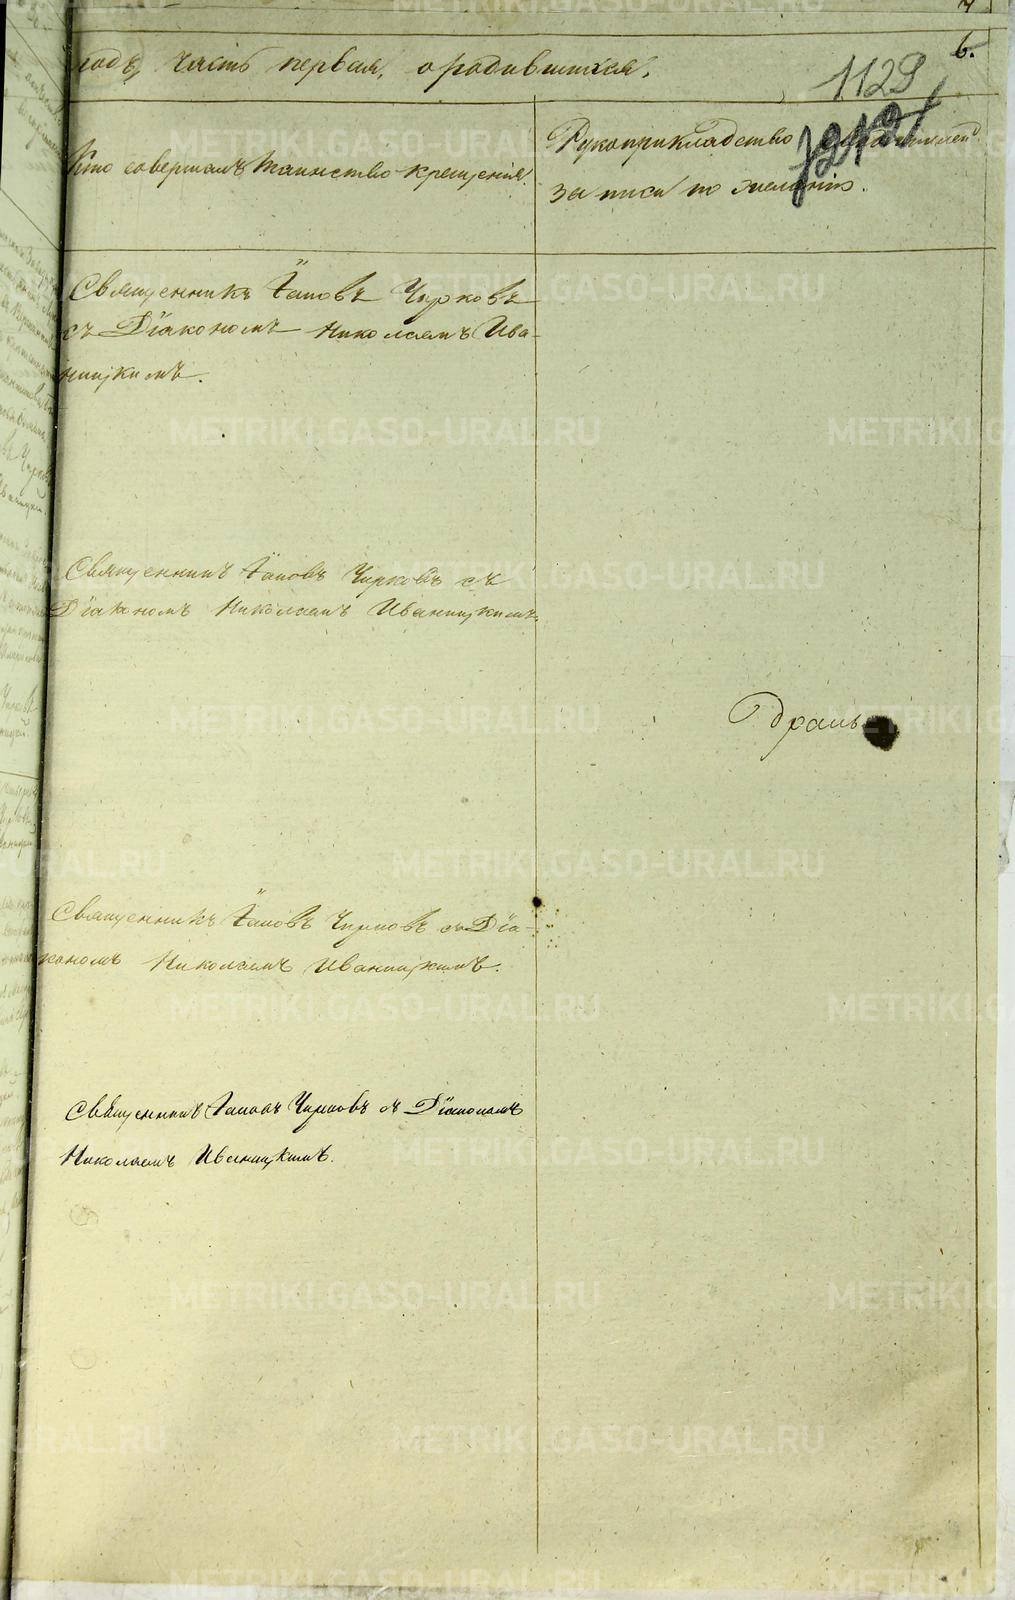 6.
годъ, часть первая, о родившихся.
1129
Кто совершалъ таинство крещенія.
Рукоприкладство
записи по желанію.
Священникъ Іаковъ Чирковъ
съ Діакономъ Николаемъ Ива-
ницкимъ.
Священникъ Іаковъ Чирковъ съ
Діакономъ Николаемъ Иваницкимъ.
Священникъ Іаковъ Чирковъ съ Діа-
кономъ Николаемъ Иваницкимъ.
Священникъ Іаковъ Чирковъ съ Діакономъ
Николаемъ Иваницкимъ.
METRIKI.GASO-URAL.RU